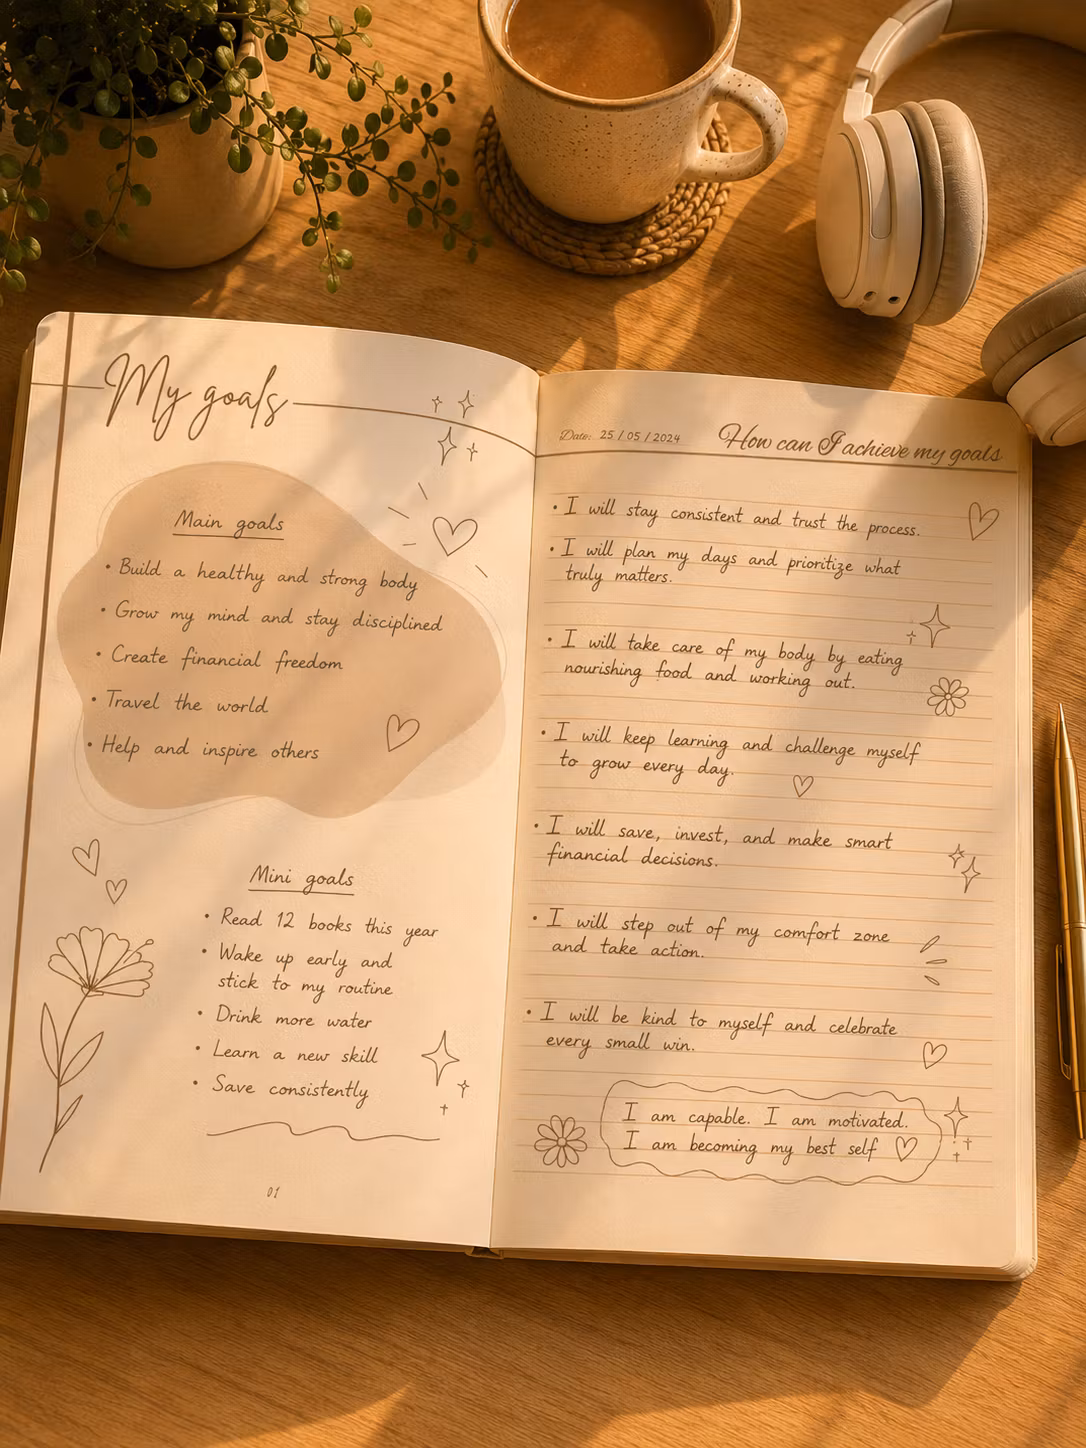 My goals
Main goals
• Build a healthy and strong body
• Grow my mind and stay disciplined
• Create financial freedom
• Travel the world
• Help and inspire others
Mini goals
• Read 12 books this year
• Wake up early and
stick to my routine
• Drink more water
• Learn a new skill
• Save consistently
01
Date: 25 / 05 / 2024
How can I achieve my goals
• I will stay consistent and trust the process.
• I will plan my days and prioritize what
truly matters.
• I will take care of my body by eating
nourishing food and working out.
• I will keep learning and challenge myself
to grow every day.
• I will save, invest, and make smart
financial decisions.
• I will step out of my comfort zone
and take action.
• I will be kind to myself and celebrate
every small win.
I am capable. I am motivated.
I am becoming my best self